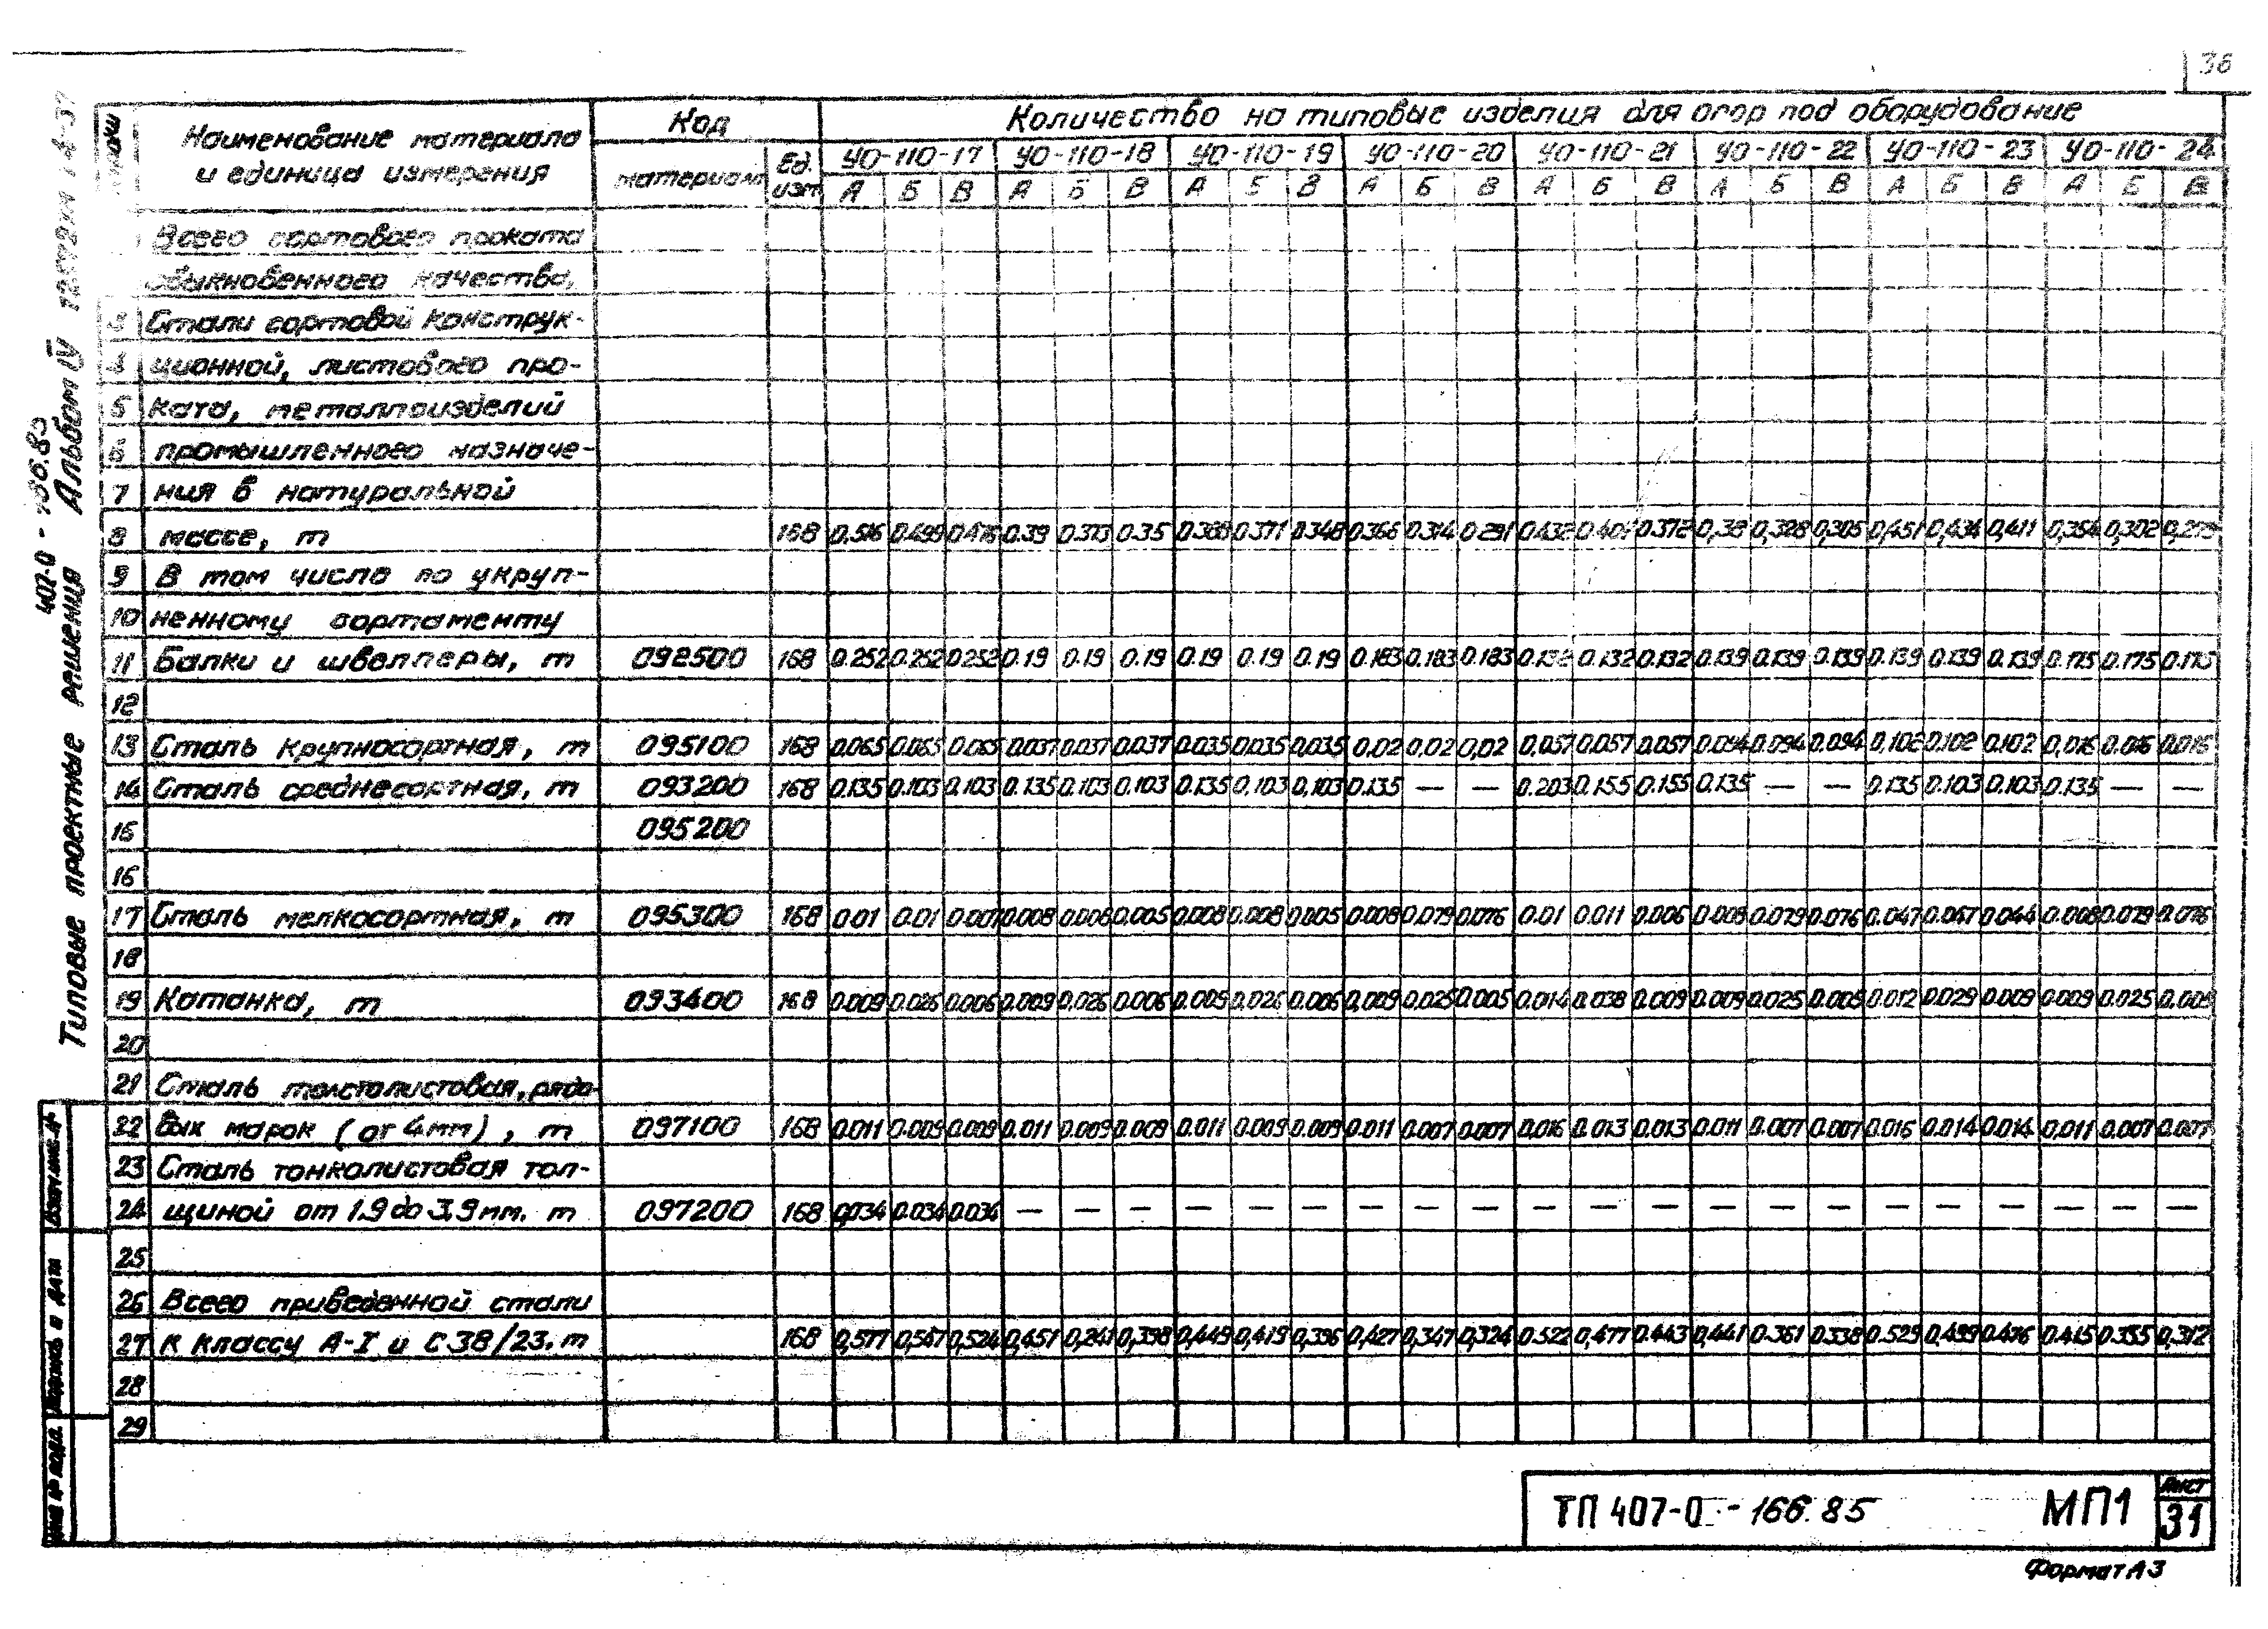 36
Количество на типовые изделия для опор под оборудование
Наименование материала и единица измерения
Код
материала
Ед. изм.
УО-110-17 УО-110-18 УО-110-19 УО-110-20 УО-110-21 УО-110-22 УО-110-23 УО-110-24
А Б В А Б В А Б В А Б В А Б В А Б В А Б В А Б В
Всего сортового проката
обыкновенного качества,
Стали сортовой конструк-
4 ционной, листового про-
5 ката, металлоизделий
6 промышленного назначе-
7 ния в натуральной
8 массе, т 168 0,516 0.499 0.476 0.39 0.373 0.35 0.388 0.371 0.348 0.366 0.314 0.291 0.432 0.401 0.372 0,38 0,328 0,305 0,451 0,434 0,411 0,354 0,302 0,279
9 В том числе по укруп-
10 ненному сортаменту
11 Балки и швеллеры, т 092500 168 0.252 0.252 0.252 0.19 0.19 0.19 0.19 0.19 0.19 0.183 0.183 0.183 0.132 0.132 0.132 0.139 0.139 0.139 0.139 0.139 0.139 0.175 0.175 0.175
12
13 Сталь крупносортная, т 095100 168 0.065 0.065 0.065 0.037 0.037 0.037 0.035 0.035 0.035 0.02 0.02 0,02 0,057 0.057 0.057 0.094 0.094 0.094 0,102 0.102 0.102 0,016 0.016 0.016
14 Сталь среднесортная, т 093200 168 0.135 0.103 0.103 0.135 0.103 0.103 0.135 0.103 0,103 0.135 — — 0.203 0.155 0.155 0.135 — — 0.135 0.103 0.103 0.135 — —
15 095200
16
17 Сталь мелкосортная, т 095300 168 0.01 0.01 0.007 0.008 0.008 0.005 0.008 0.008 0.005 0.008 0.079 0.076 0.01 0.011 0.006 0.008 0.079 0.076 0.047 0.047 0.044 0.008 0.079 0.076
18
19 Катанка, т 093400 168 0.009 0.026 0.006 0.009 0.026 0.006 0.009 0.026 0.006 0,009 0.025 0.005 0.014 0.038 0.009 0.009 0.025 0.005 0.012 0.029 0.009 0.009 0.025 0.005
20
21 Сталь толстолистовая, рядо-
22 вых марок (от 4 мм), т 097100 168 0.011 0.009 0.009 0.011 0.009 0.009 0.011 0.009 0.009 0.011 0.007 0.007 0.016 0.013 0.013 0.011 0.007 0.007 0.016 0.014 0.014 0.011 0.007 0.007
23 Сталь тонколистовая тол-
24 щиной от 1.9 до 3.9 мм. т 097200 168 0,034 0.034 0.034 — — — — — — — — — — — — — — — — — — — — —
25
26 Всего приведенной стали
27 к классу А-I и С38/23. т 168 0,577 0,547 0,524 0,451 0,241 0,398 0,449 0,419 0,396 0,427 0,347 0,324 0.522 0,477 0.443 0,441 0.361 0.338 0.529 0,499 0.476 0.415 0.335 0,312
28
29
Типовые проектные решения Альбом IV
407-0-166.85
Взам. инв. №
Подпись и дата
Инв. № подл.
ТП 407-0-166.85
МП1
Лист
31
Формат А3